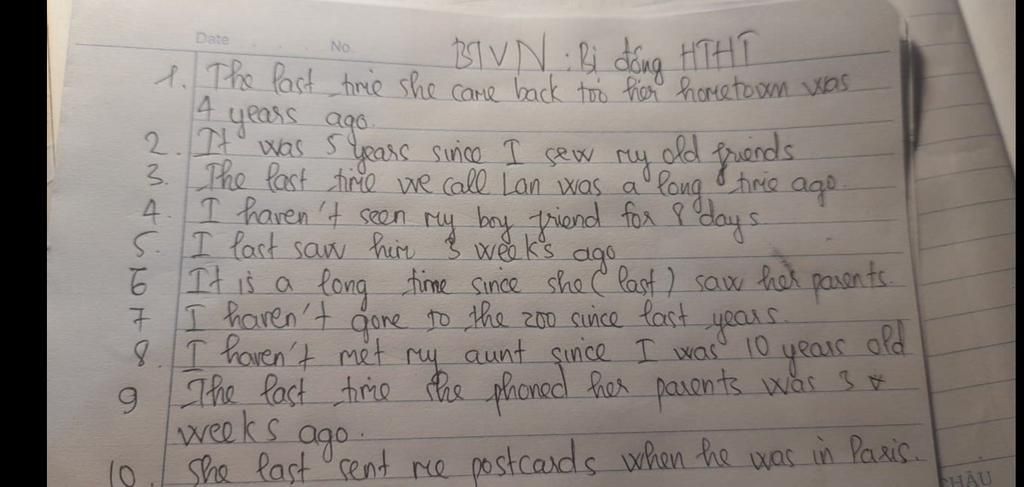 Date No. BTVN : Bị động HTHT
1. The last time she came back too her hometown was
4 years ago.
2. It was 5 years since I sew my old friends
3. The last time we call Lan was a long time ago.
4. I haven't seen my boy friend for 8 days
5. I last saw him 3 weeks ago
6 It is a long time since she (last) saw her parents.
7 I haven't gone to the zoo since last years.
8. I haven't met my aunt since I was 10 years old
9 The last time she phoned her parents was 3
weeks ago.
10. She last sent me postcards when he was in Paris.
CHÂU